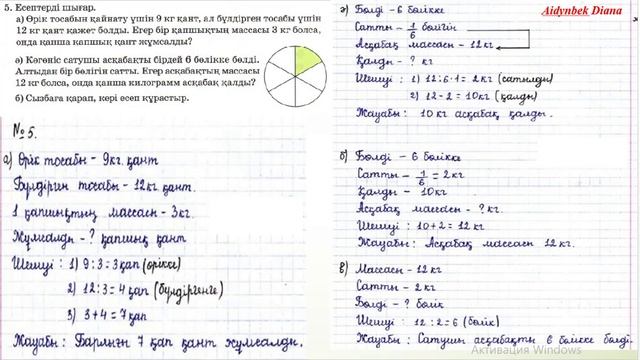 5. Есептерді шығар.
а) Өрік тосабын қайнату үшін 9 кг қант, ал бүлдірген тосабы үшін
12 кг қант қажет болды. Егер бір қапшықтың массасы 3 кг болса,
онда қанша қапшық қант жұмсалды?
ә) Көгөніс сатушы асқабақты бірдей 6 бөлікке бөлді.
Алтыдан бір бөлігін сатты. Егер асқабақтың массасы
12 кг болса, онда қанша килограмм асқабақ қалды?
б) Сызбаға қарап, кері есеп құрастыр.
№ 5.
а) Өрік тосабы - 9кг. қант
Бүлдірген тосабы - 12кг қант.
1 қапшықтың массасы - 3кг.
Жұмсалды - ? қапшық қант
Шешуі : 1) 9 : 3 = 3 қап (өрікке)
2) 12 : 3 = 4 қап (бүлдіргенге)
3) 3 + 4 = 7 қап
Жауабы : Барлығы 7 қап қант жұмсалды.
Aidynbek Diana
ә) Бөлді - 6 бөлікке
Сатты - 1/6 бөлігін
Асқабақ массасы - 12кг
Қалды - ? кг
Шешуі : 1) 12 : 6 · 1 = 2 кг (сатылды)
2) 12 - 2 = 10кг (қалды)
Жауабы : 10 кг асқабақ қалды.
б) Бөлді - 6 бөлікке
Сатты - 1/6 = 2кг
Қалды - 10кг
Асқабақ массасы - ? кг.
Шешуі : 10 + 2 = 12 кг
Жауабы : Асқабақ массасы 12 кг.
в) Массасы - 12 кг
Сатты - 2 кг
Бөлді - ? бөлік
Шешуі : 12 : 2 = 6 (бөлік)
Жауабы : Сатушы асқабақты 6 бөлікке бөлді.
Активация Windows